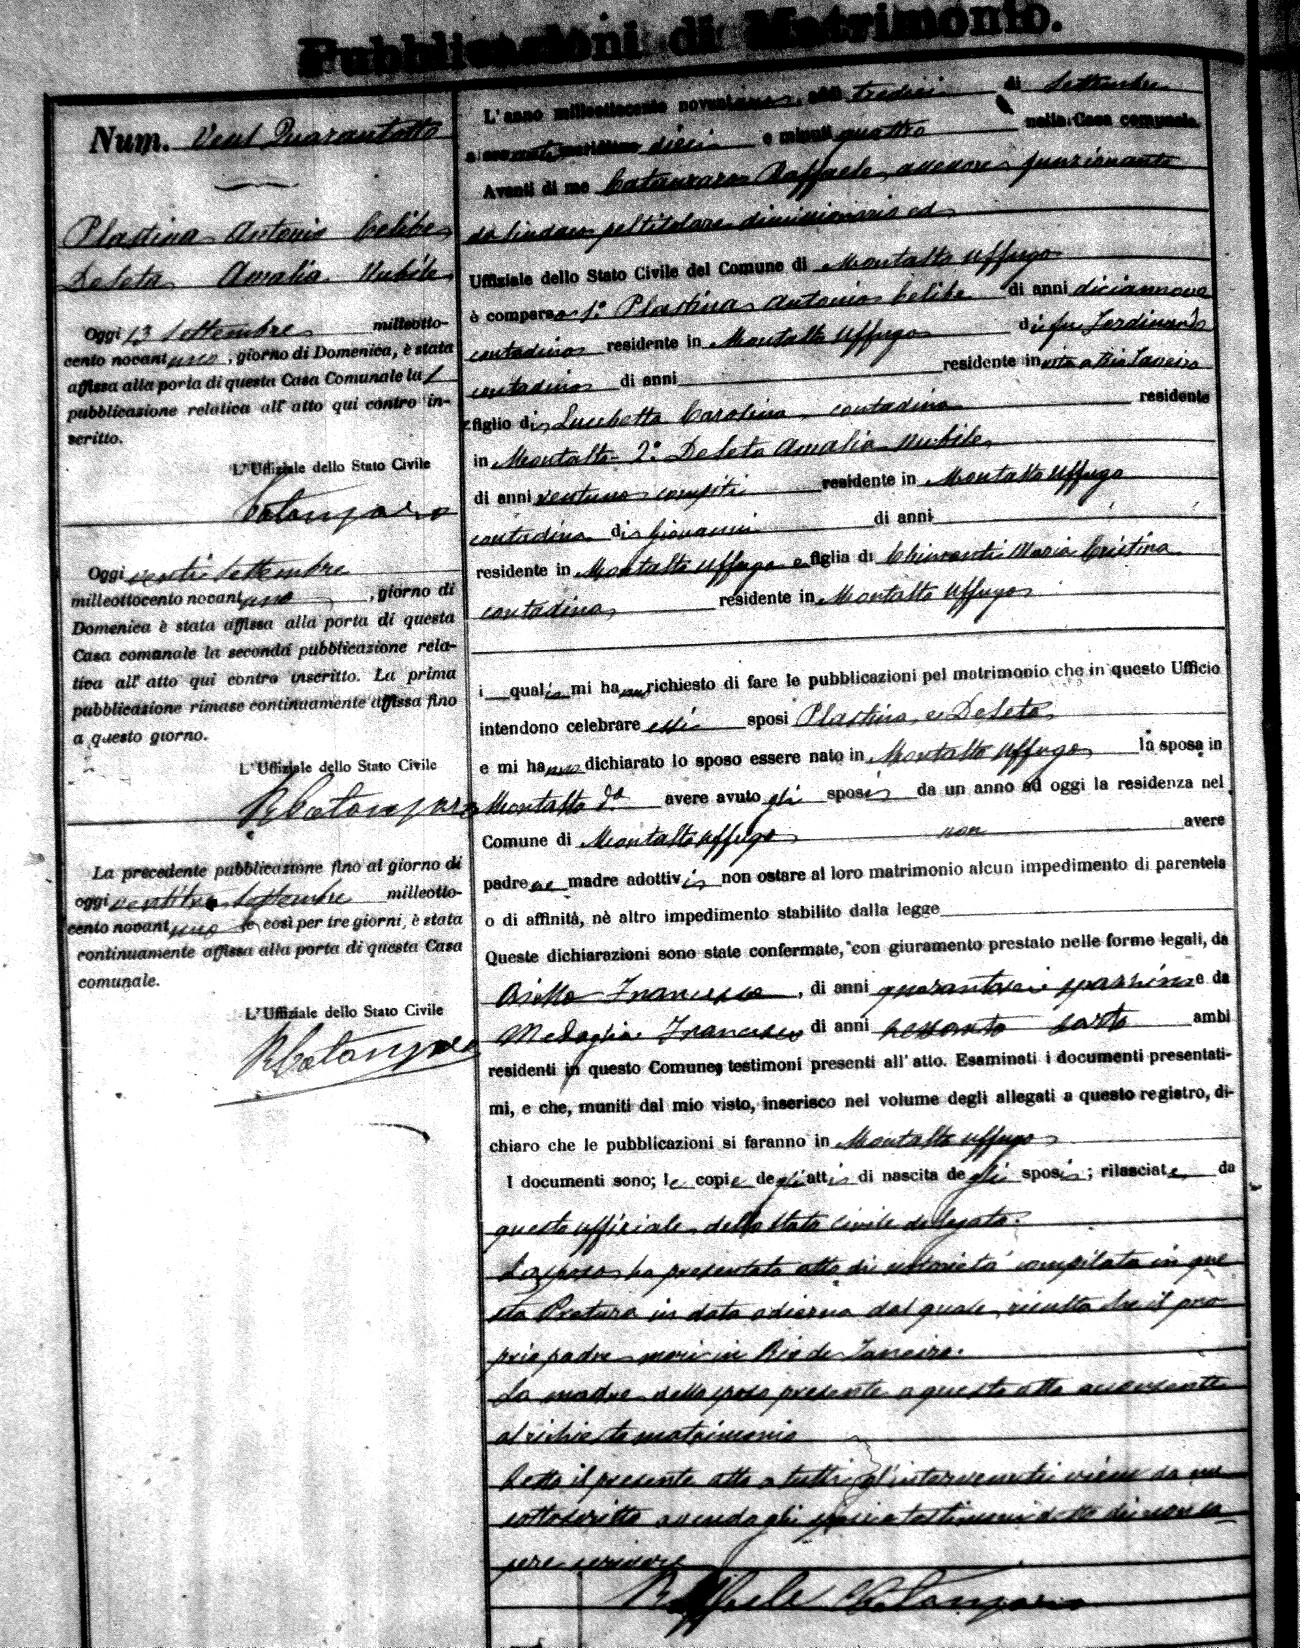 Pubblicazioni di Matrimonio.
Num. Quarantotto
Plastina Antonio celibe
Deseta Amalia Nubile
Oggi 13 Settembre milleotto-
cento novantuno, giorno di Domenica, è stata
affissa alla porta di questa Casa Comunale la 1
pubblicazione relativa all'atto qui contro in-
scritto.
L'Uffiziale dello Stato Civile
Catanzaro
Oggi venti Settembre
milleottocento novantuno, giorno di
Domenica è stata affissa alla porta di questa
Casa comunale la seconda pubblicazione rela-
tiva all'atto qui contro inscritto. La prima
pubblicazione rimase continuamente affissa fino
a questo giorno.
L'Uffiziale dello Stato Civile
R Catanzaro
La precedente pubblicazione fino al giorno di
oggi ventitre Settembre milleotto-
cento novantuno e così per tre giorni, è stata
continuamente affissa alla porta di questa Casa
comunale.
L'Uffiziale dello Stato Civile
R Catanzaro
L'anno milleottocento novantuno, addì tredici di Settembre
a ore antimeridiane dieci e minuti quattro nella Casa comunale.
Avanti di me Catanzaro Raffaele, assessore funzionante
da Sindaco pel titolare dimissionario ed
Uffiziale dello Stato Civile del Comune di Montalto Uffugo
è comparso 1° Plastina Antonio celibe di anni diciannove
contadino residente in Montalto Uffugo di fu Ferdinando
contadino di anni residente in vita a Rio Janeiro
figlio di Lucchetta Carolina, contadina residente
in Montalto 2° Deseta Amalia nubile
di anni ventuno compiti residente in Montalto Uffugo
contadina di Giovanni di anni
residente in Montalto Uffugo e figlia di Chimenti Maria Cristina
contadina residente in Montalto Uffugo
i quali mi hanno richiesto di fare le pubblicazioni pel matrimonio che in questo Ufficio
intendono celebrare essi sposi Plastina e Deseta
e mi hanno dichiarato lo sposo essere nato in Montalto Uffugo la sposa in
Montalto d° avere avuto gli sposi da un anno ad oggi la residenza nel
Comune di Montalto Uffugo non avere
padre ne madre adottivi non ostare al loro matrimonio alcun impedimento di parentela
o di affinità, nè altro impedimento stabilito dalla legge
Queste dichiarazioni sono state confermate, con giuramento prestato nelle forme legali, da
Francesco, di anni quarantasei spazzino e da
Medaglia Francesco di anni sessanta sarto ambi
residenti in questo Comune, testimoni presenti all'atto. Esaminati i documenti presentati-
mi, e che, muniti dal mio visto, inserisco nel volume degli allegati a questo registro, di-
chiaro che le pubblicazioni si faranno in Montalto Uffugo
I documenti sono; le copie degli atti di nascita degli sposi; rilasciate da
questo uffiziale dello stato civile delegato.
Lo sposo ha presentato atto di notorietà compilato in que
sta Pretura in data odierna dal quale risulta che il pro
prio padre morì in Rio de Janeiro.
La madre dello sposo presente a questo atto acconsente
al richiesto matrimonio
Letto il presente atto a tutti gl'intervenuti viene da me
sottoscritto avendo gli sposi e testimoni detto di non sa
pere scrivere
Raffaele Catanzaro